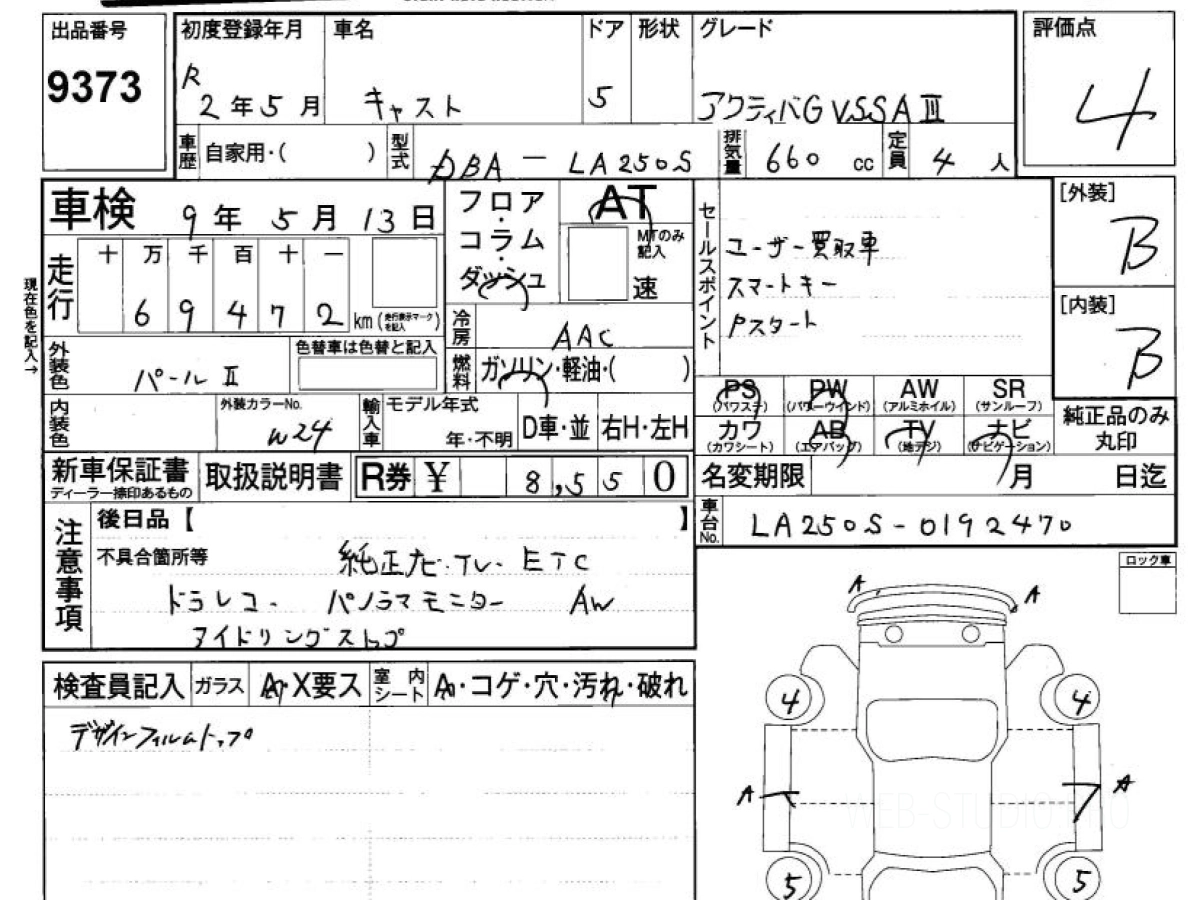 出品番号
9373
初度登録年月
R
2年5月
車名
キャスト
ドア
5
形状
グレード
アクティバG VSSAⅢ
評価点
4
車歴
自家用・( )
型式
DBA－LA250S
排気量
660 cc
定員
4人
車検
9年5月13日
フロア・コラム・ダッシュ
AT
MTのみ記入
速
セールスポイント
ユーザー買取車
スマートキー
Pスタート
[外装]
B
[内装]
B
現在色を記入→
走行
十万千百十一
69472
km(走行表示マークを記入)
冷房
AAC
燃料
ガソリン・軽油・( )
外装色
パールⅡ
色替車は色替と記入
内装色
外装カラーNo.
W24
輸入車
モデル年式
年・不明
D車・並
右H・左H
PS
(パワステ)
PW
(パワーウインド)
AW
(アルミホイル)
SR
(サンルーフ)
カワ
(カワシート)
AB
(エアバッグ)
TV
(地デジ)
ナビ
(ナビゲーション)
純正品のみ
丸印
新車保証書
ディーラー捺印あるもの
取扱説明書
R券 ¥ 8,550
名変期限 月 日迄
車台No.
LA250S-0192470
注意事項
後日品【 】
不具合箇所等
純正ナビ・TV・ETC
ドラレコ・ パノラマモニター AW
アイドリングストップ
ロック車
検査員記入
ガラス
A・X要ス
室内シート
A・コゲ・穴・汚れ・破れ
デザインフィルムトップ
A
A
4
4
A
A
5
5
WEB-STUDIO.PRO